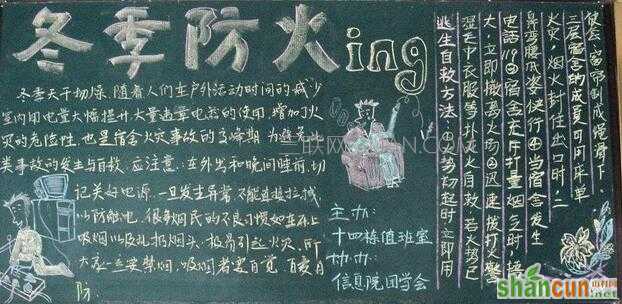 冬季防火ing
冬季天干物燥，随着人们在户外活动时间的减少
室内用电量大幅提升大量违章电器的使用，增加了火
灾的危险性，也是宿舍火灾事故的高峰期为避免
类事故的发生与自救，应注意：在外出和晚间睡前，切
记关好电源，一旦发生异常不能直接拉拭
以防触电，很多烟民的不良习惯如在床上
吸烟以及扎扔烟头，极易引起火灾，所
大家一定要禁烟，吸烟者要自觉
防
主办：
十四栋值班室
协办：
信息院团学会
逃生自救方法：①火势初起时立即用
湿毛巾衣服等扑火自救若火势已
大，立即撤离火场②迅速拨打火警
电话119③宿舍走廊打量烟气时，接
鼻弯腰低姿使行④当宿舍发生
火灾，烟火封住出口时，二
三层宿舍的成员可用床单
使会，窗帘制成绳滑下
山村网
shancun